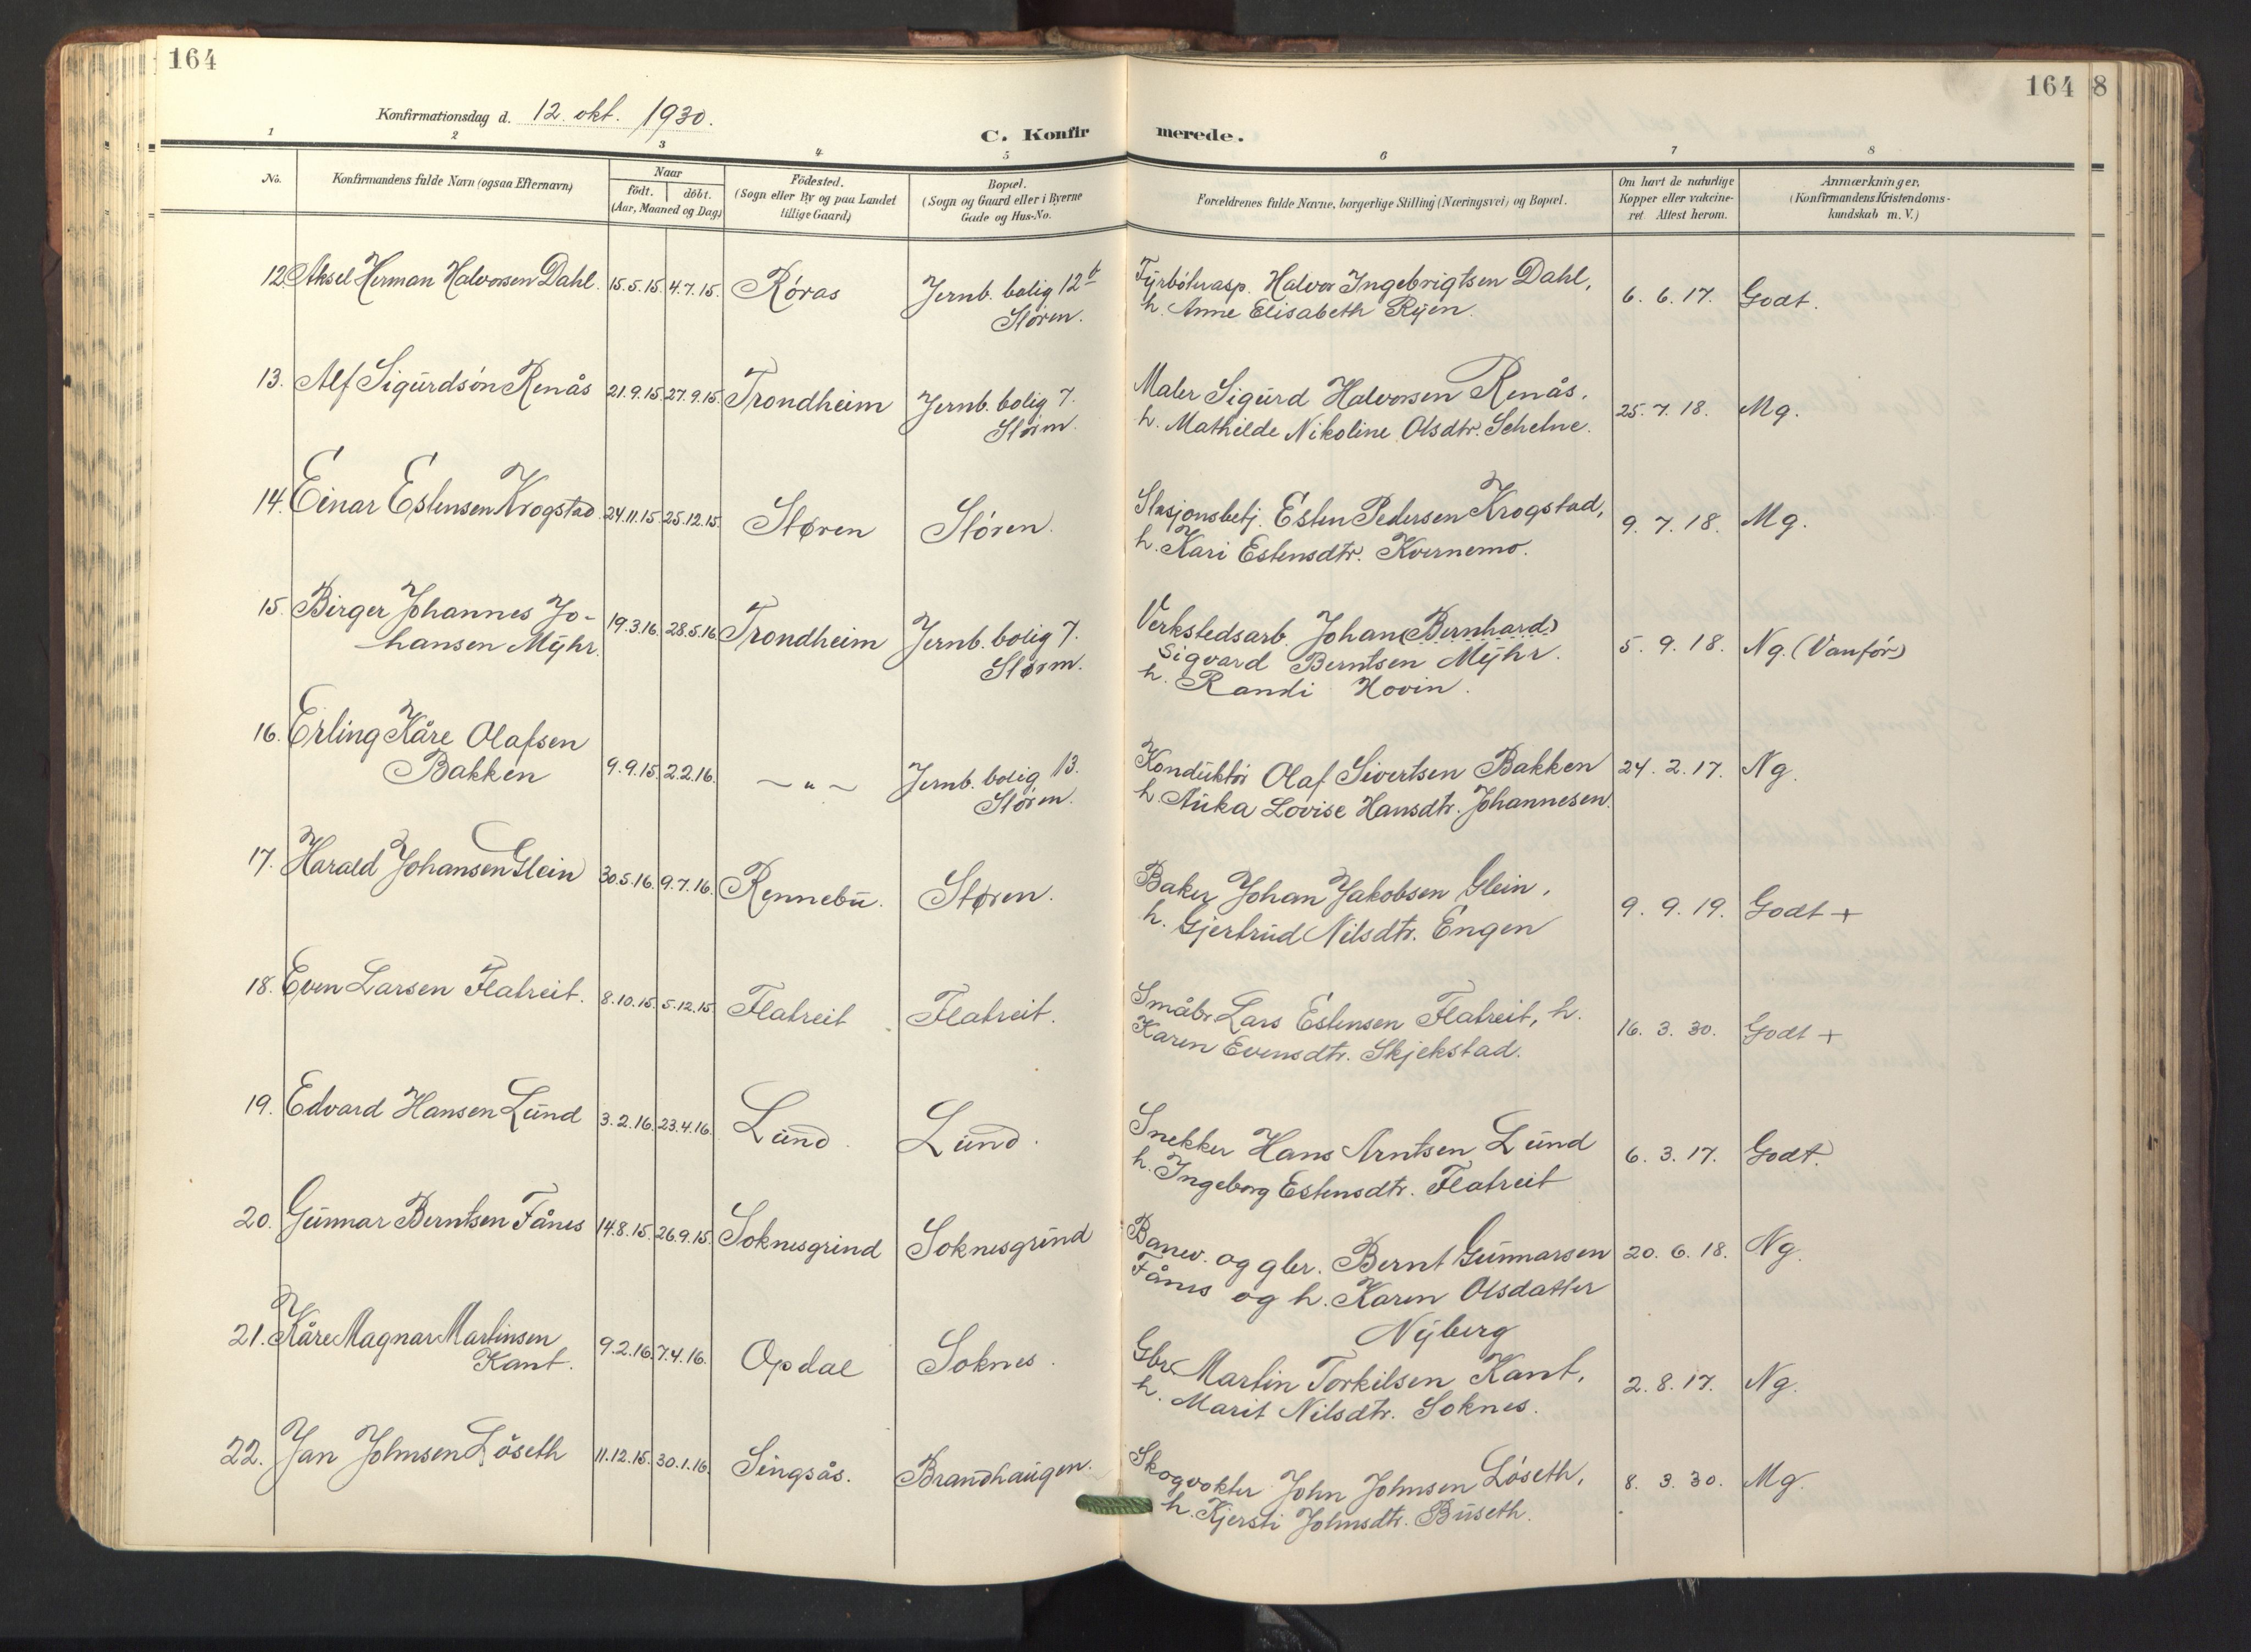 164
164
8
Konfirmationsdag d. 12. okt. 1930.
C. Konfirmerede.
1 2 3 4 5 6 7 8
No.
Konfirmandens fulde Navn (ogsaa Efternavn)
Naar
födt. döbt.
(Aar, Maaned og Dag)
Födested.
(Sogn eller By og paa Landet
tillige Gaard)
Bopæl.
(Sogn og Gaard eller i Byerne
Gade og Hus-No.
Forældrenes fulde Navne, borgerlige Stilling (Næringsvei) og Bopæl.
Om havt de naturlige
Kopper eller vakcine-
ret. Attest herom.
Anmærkninger.
(Konfirmandens Kristendoms-
kundskab m. V.)
12. Aksel Herman Halvorsen Dahl. 15.5.15. 4.7.15. Róras Jernb. bolig 12b
Stóren.
Fyrbóterasp. Halvor Ingebrigtsen Dahl,
h. Anne Elisabeth Ryen.
6. 6. 17. Godt.
13. Alf Sigurdsón Renås 21.9.15. 27.9.15. Trondheim Jernb. bolig 7.
Stóren.
Maler Sigurd Halvorsen Renås.
h. Mathilde Nikoline Olsdtr. Schelne.
25. 7. 18. Mg.
14. Einar Estensen Krogstad 24.11.15. 25.12.15. Støren Stóren.
Stasjonsbetj. Esten Pedersen Krogstad,
h. Kari Estensdtr. Kvernemo.
9. 7. 18. Mg.
15. Birger Johannes Jo-
hansen Myhr. 19.3.16. 28.5.16. Trondheim Jernb. bolig 7.
Støren.
Verkstedsarb. Johan (Bernhard)
Sigvard Berntsen Myhr.
h. Randi Hovin.
5. 9. 18. Ng. (Vanfór)
16. Erling Kåre Olafsen
Bakken 9.9.15. 2.2.16. — " — Jernb. bolig 13.
Stóren.
Konduktór Olaf Sivertsen Bakken
h. Anka Lovise Hansdtr. Johannesen.
24. 2. 17. Ng.
17. Harald Johansen Glein 30.5.16. 9.7.16. Rennebu. Støren.
Baker Johan Jakobsen Glein,
h. Gjertrud Nilsdtr. Engen
9. 9. 19. Godt +
18. Even Larsen Flatreit. 8.10.15. 5.12.15. Flatreit Flatreit.
Småbr Lars Estensen Flatreit, h.
Karen Evensdtr. Skjekstad.
16. 3. 30. Godt +
19. Edvard Hansen Lund 3.2.16. 23.4.16. Lund. Lund.
Snekker Hans Arntsen Lund
h. Ingeborg Estensdtr. Flatreit
6. 3. 17. Godt.
20. Gunnar Berntsen Fånes 14.8.15. 26.9.15. Soknesgrind Soknesgrind
Banev. og gbr. Bernt Gunnarsen
Fånes og h. Karen Olsdatter
Nyberg
20. 6. 18. Ng.
21. Kåre Magnar Martinsen
Kant. 9.2.16. 7.4.16. Opdal Soknes.
Gbr. Martin Torkilsen Kant,
h. Marit Nilsdtr. Soknes.
2. 8. 17. Ng.
22. Jan Johnsen Lóseth 11.12.15. 30.1.16. Singsås. Brandhaugen.
Skogvokter John Johnsen Lóseth,
h. Kjersti Johnsdtr. Buseth.
8. 3. 30. Mg.